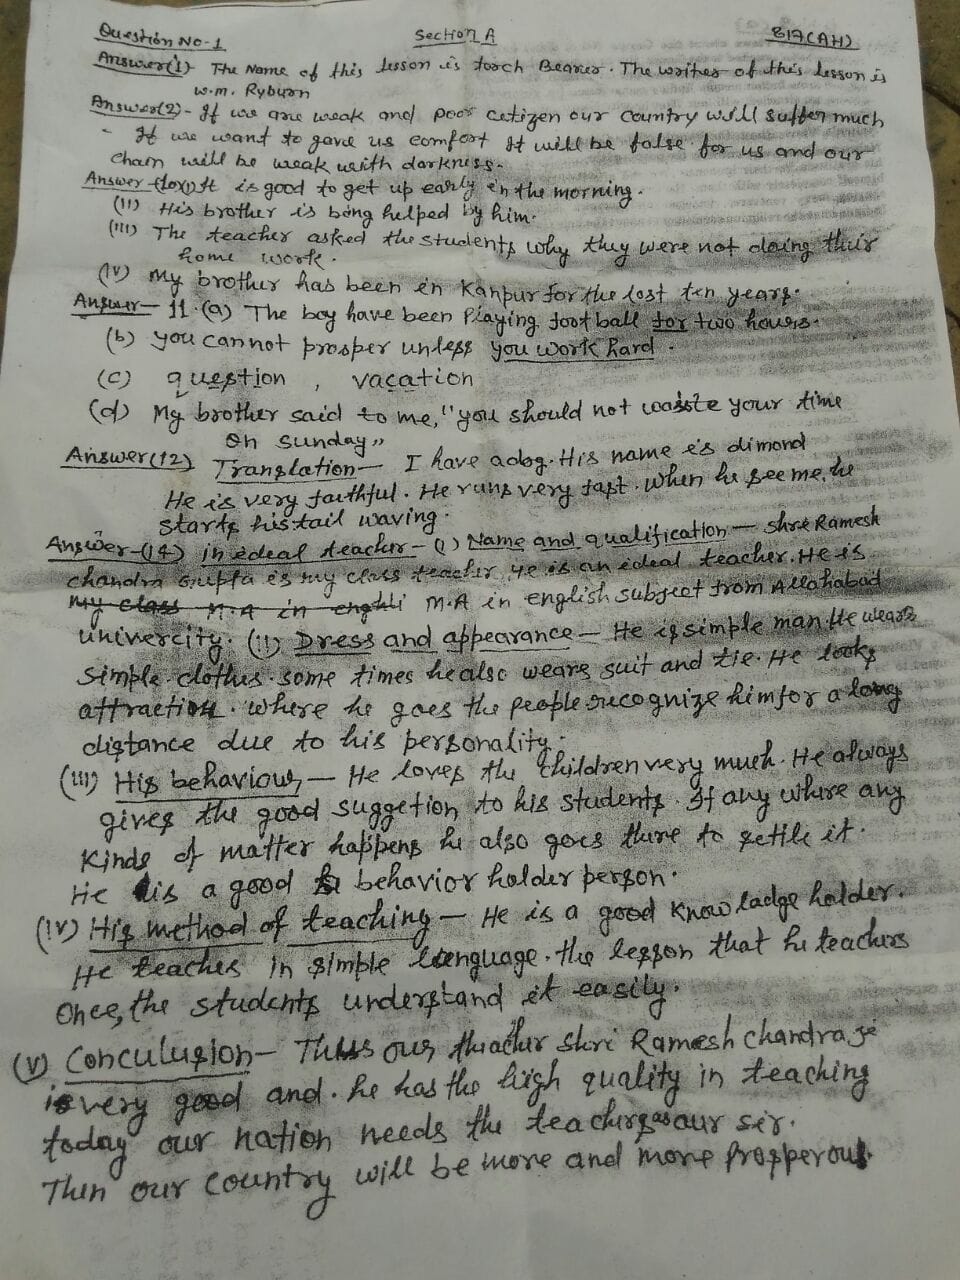 Question No-1 Section A 817(AH)
Answer(1)- The Name of this lesson is torch Bearer. The writer of this lesson is
w.m. Ryburn
Answer(2)- If we are weak and poor citizen our country will suffer much
- If we want to gave us comfort It will be false for us and our
Chain will be weak with darkness.
Answer-(10)(i) It is good to get up early in the morning.
(II) His brother is being helped by him.
(III) The teacher asked the students why they were not doing their
home work.
(IV) My brother has been in Kanpur for the last ten years.
Answer- 11.(a) The boy have been Playing football for two hours.
(b) you cannot prosper unless you work hard.
(c) question , vacation
(d) My brother said to me, "you should not waste your time
On Sunday"
Answer(12) Translation- I have a dog. His name is dimond
He is very faithful. He runs very fast. when he see me, he
starts his tail waving.
Answer-(14) in edeal teacher-(i) Name and qualification - shri Ramesh
chandra Gupta is my class teacher. He is an edeal teacher. He is
my class M.A in enghli M.A in english subject from Allahabad
univercity. (II) Dress and appearance - He is simple man. He wears
simple clothes. some times he also wears suit and tie. He looks
attraction. where he goes the people recognize him for a long
distance due to his personality.
(III) His behaviour - He loves the children very much. He always
gives the good suggetion to his students. If any where any
Kinds of matter happens he also goes there to settle it.
He is a good behavior holder person.
(IV) His method of teaching - He is a good knowladge holder.
He teaches in simple language. the lesson that he teachers
Once, the students understand it easily.
(V) Conculusion- Thus our theacher Shri Ramesh chandra ji
is very good and. he has the high quality in teaching
today our nation needs the teachers as our sir.
Then our country will be more and more Prosperous.